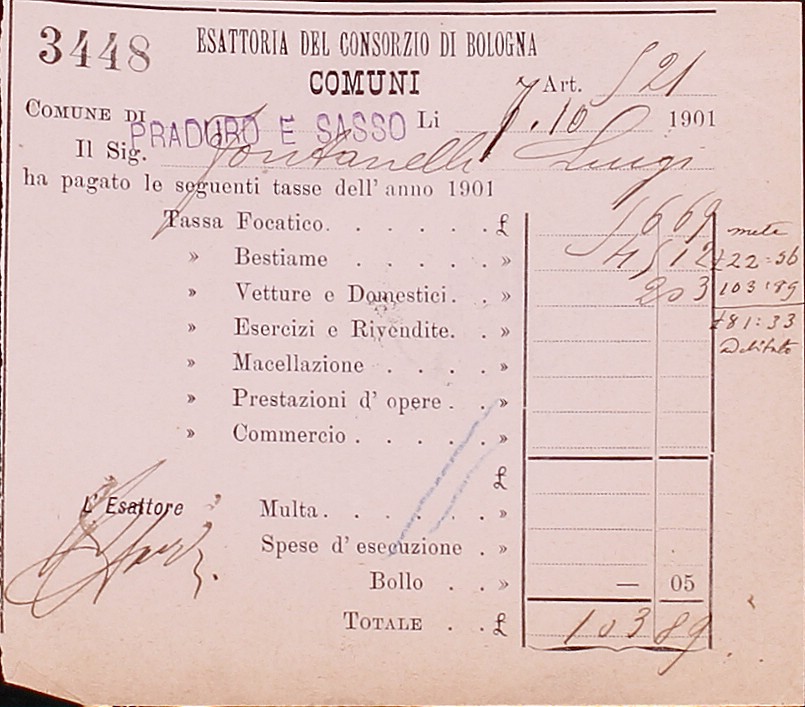 3448 ESATTORIA DEL CONSORZIO DI BOLOGNA
COMUNI
Art. 521
COMUNE DI PRADURO E SASSO Li 7.10 1901
Il Sig. Fontanelli Luigi
ha pagato le seguenti tasse dell' anno 1901
Tassa Focatico. . . . . . £ 56 69
» Bestiame . . . . . » 45 12
» Vetture e Domestici. . » 2 03
» Esercizi e Rivendite. . »
» Macellazione . . . . »
» Prestazioni d' opere . . »
» Commercio . . . . . »
£
L' Esattore
Multa. . . . . . . »
Spese d' esecuzione . »
Bollo . . » — 05
TOTALE . . £ 103 89
metà
£22=56
103:89
£81:33
Debitato